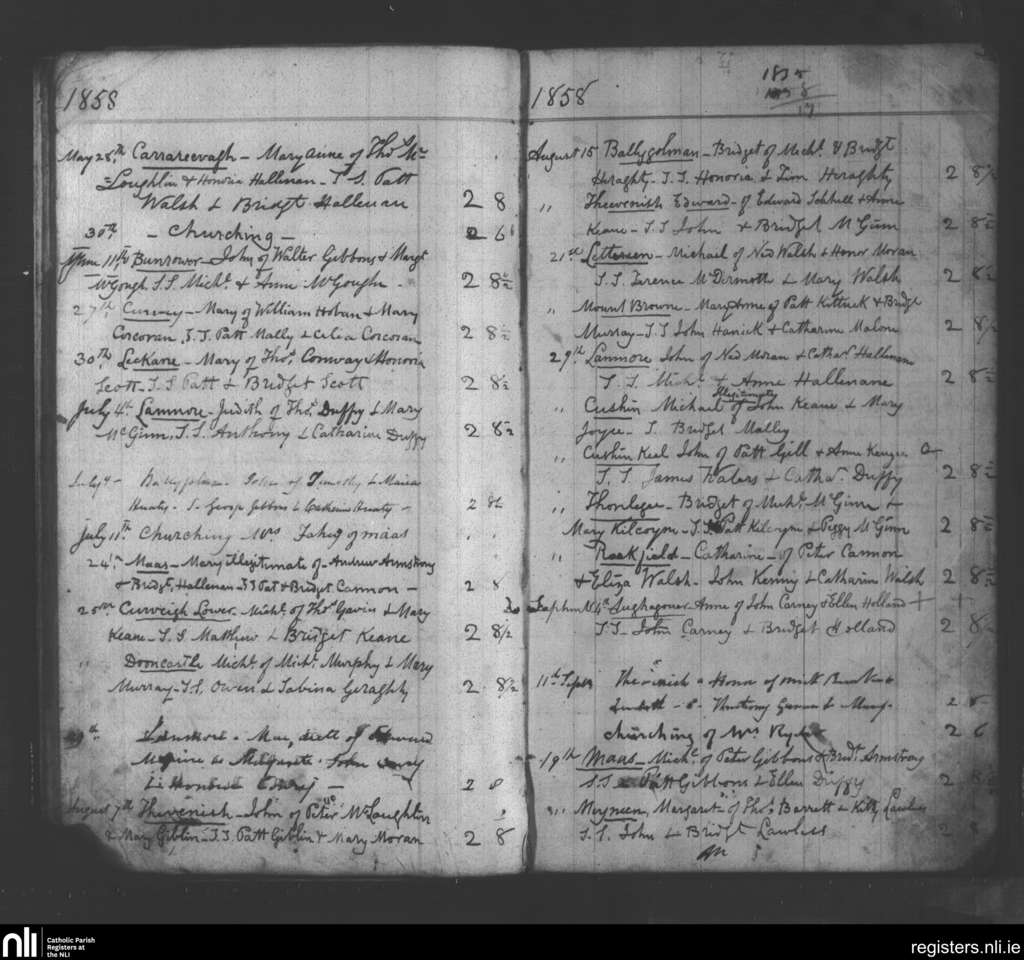 1858
May 28th Carrareevagh - Mary Anne of Thos Mc
Loughlin & Honoria Hallenan - S S. Patt
Walsh & Bridgt Hallenan 2 8
30th - Churching - 2 6
June 11th Burrower - John of Walter Gibbons & Margt
McGough S.S. Michl & Anne McGough - 2 8½
27th - Mary of William Hoban & Mary
Corcoran, S.S. Patt Mally & Celia Corcoran 2 8½
30th Leckane - Mary of Thos Conway & Honoria
Scott - S.S Patt & Bridget Scott 2 8½
July 4th Lanmore - Judith of Thos Duffy & Mary
McGinn, S.S. Anthony & Catharine Duffy 2 8½
Ballygolman - of Timothy & Maria
- S. George Gibbons & Catherine - 2 8½
July 11th Churching Mrs Fahey of Maas
24th Maas - Mary Illegitimate of Andrew Armstrong
& Bridgt Hallenan - S S Pat & Bridget Cannon - 2 8
25th Curveigh Lower - Michl of Thos Gavin & Mary
Keane - S.S. Matthew & Bridget Keane 2 8½
" Dooncastle Michl of Michl Murphy & Mary
Murray - S.S. Owen & Sabina Geraghty 2 8½
Lanmore - of Edward
John
& Honor 2 8
August 7th Thevenish - John of Peter McLoughlin
& Mary Giblin - S.S. Patt Giblin & Mary Moran 2 8
1858
17
August 15 Ballygolman - Bridget of Michl & Bridgt
Heraghty - S.S. Honoria & Tim Heraghty 2 8½
" Thevenish Edward - of Edward & Anne
Keane - S.S John & Bridget McGinn 2 8½
21st Letterseen - Michael of Ned Walsh & Honor Moran
S.S. Terence McDirmoth & Mary Walsh 2 8½
" Mount Browne - Mary Anne of Patt Kittuck & Bridgt
Murray - S.S John Hanick & Catharine Malone 2 8½
29th Lanmore John of Ned Moran & Cathar Hallenan
S.S. Michl & Anne Hallenane 2 8½
Illegitimate
" Cushin Michael of John Keane & Mary
Joyce - S. Bridget Malley
" Cushin Keel John of Patt Gill & Anne
S.S. James Waters & Catha Duffy 2 8½
" Thornleger - Bridget of Michl McGinn &
Mary Kilcoyne - S.S. Patt Kilcoyne & Peggy McGinn 2 8½
" Rockfield - Catharine - of Peter Cannon
& Eliza Walsh - John Kenny & Catharin Walsh 2 8½
4th Aughagower Anne of John Carney & Ellen Holland
S.S - John Carney & Bridget Holland 2 8½
11th Septr Thevinish Honor of
- S - Anthony & Mary
Churching of Mrs 2 6
19th Maas - Michl of Peter Gibbons & Bridt Armstrong
S.S - Patt Gibbons & Ellen Duffy 2 8
" Meyneen, Margart of Thos Barratt & Kitty Lawless
S.S. John & Bridgt Lawless 2 8
nli
Catholic Parish
Registers at
the NLI
registers.nli.ie